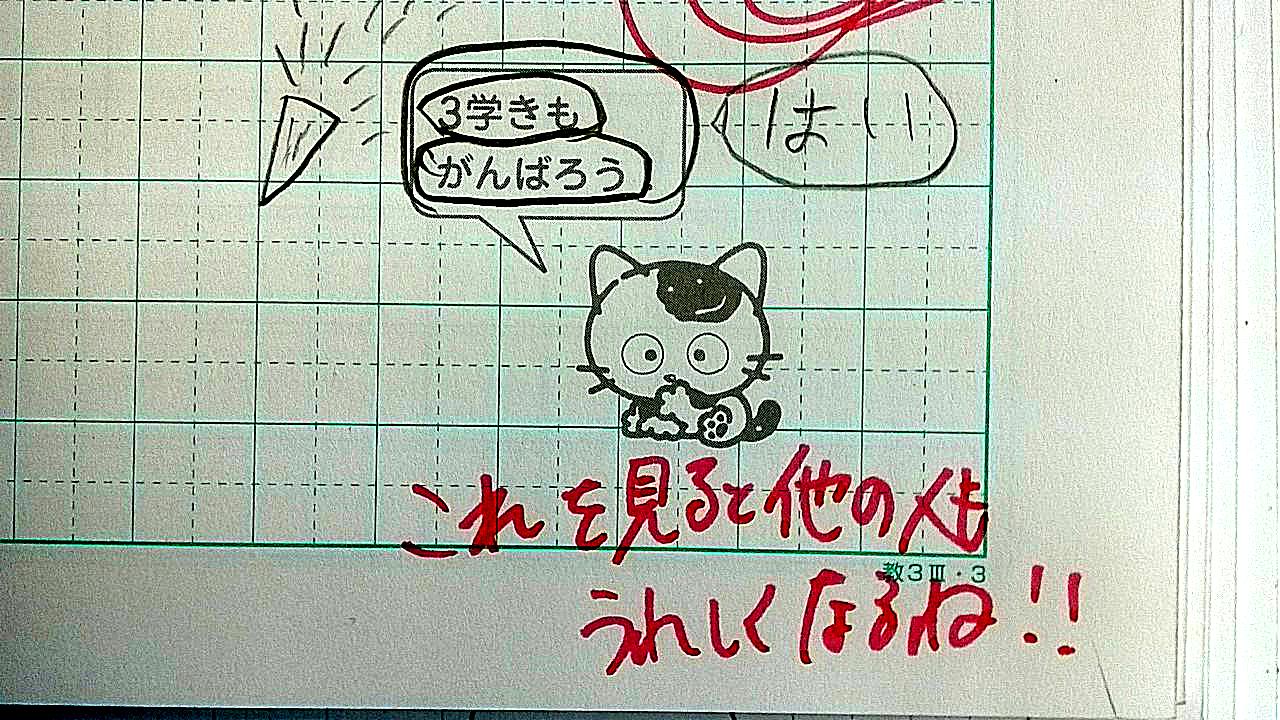 3学きも
がんばろう
はい
これを見ると他の人も
教3Ⅲ・3
うれしくなるね!!